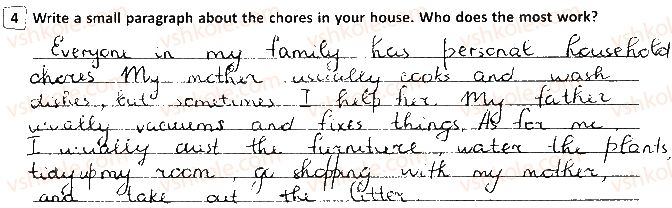 4 Write a small paragraph about the chores in your house. Who does the most work?
Everyone in my family has personal household
chores. My mother usually cooks and wash
dishes, but sometimes I help her. My father
usually vacuums and fixes things. As for me
I usually dust the furniture, water the plants
tidy up my room, go shopping with my mother,
and take out the litter